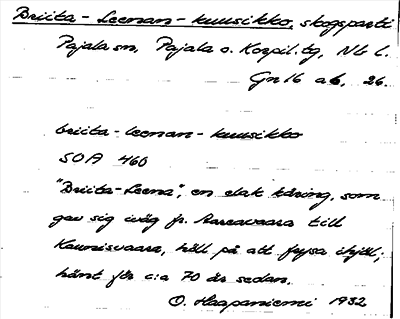 Briita-Leenan-kuusikko, skogsparti
Pajala sn, Pajala o. Korpil. tg, Nb l.
Gn 16 a6, 26.
briita-leenan-kuusikko
SOA 460
"Briita-Leena", en elak käring, som
gav sig iväg fr. Aareavaara till
Kaunisvaara, höll på att frysa ihjäl;
hänt för c:a 70 år sedan.
O. Haapaniemi 1932